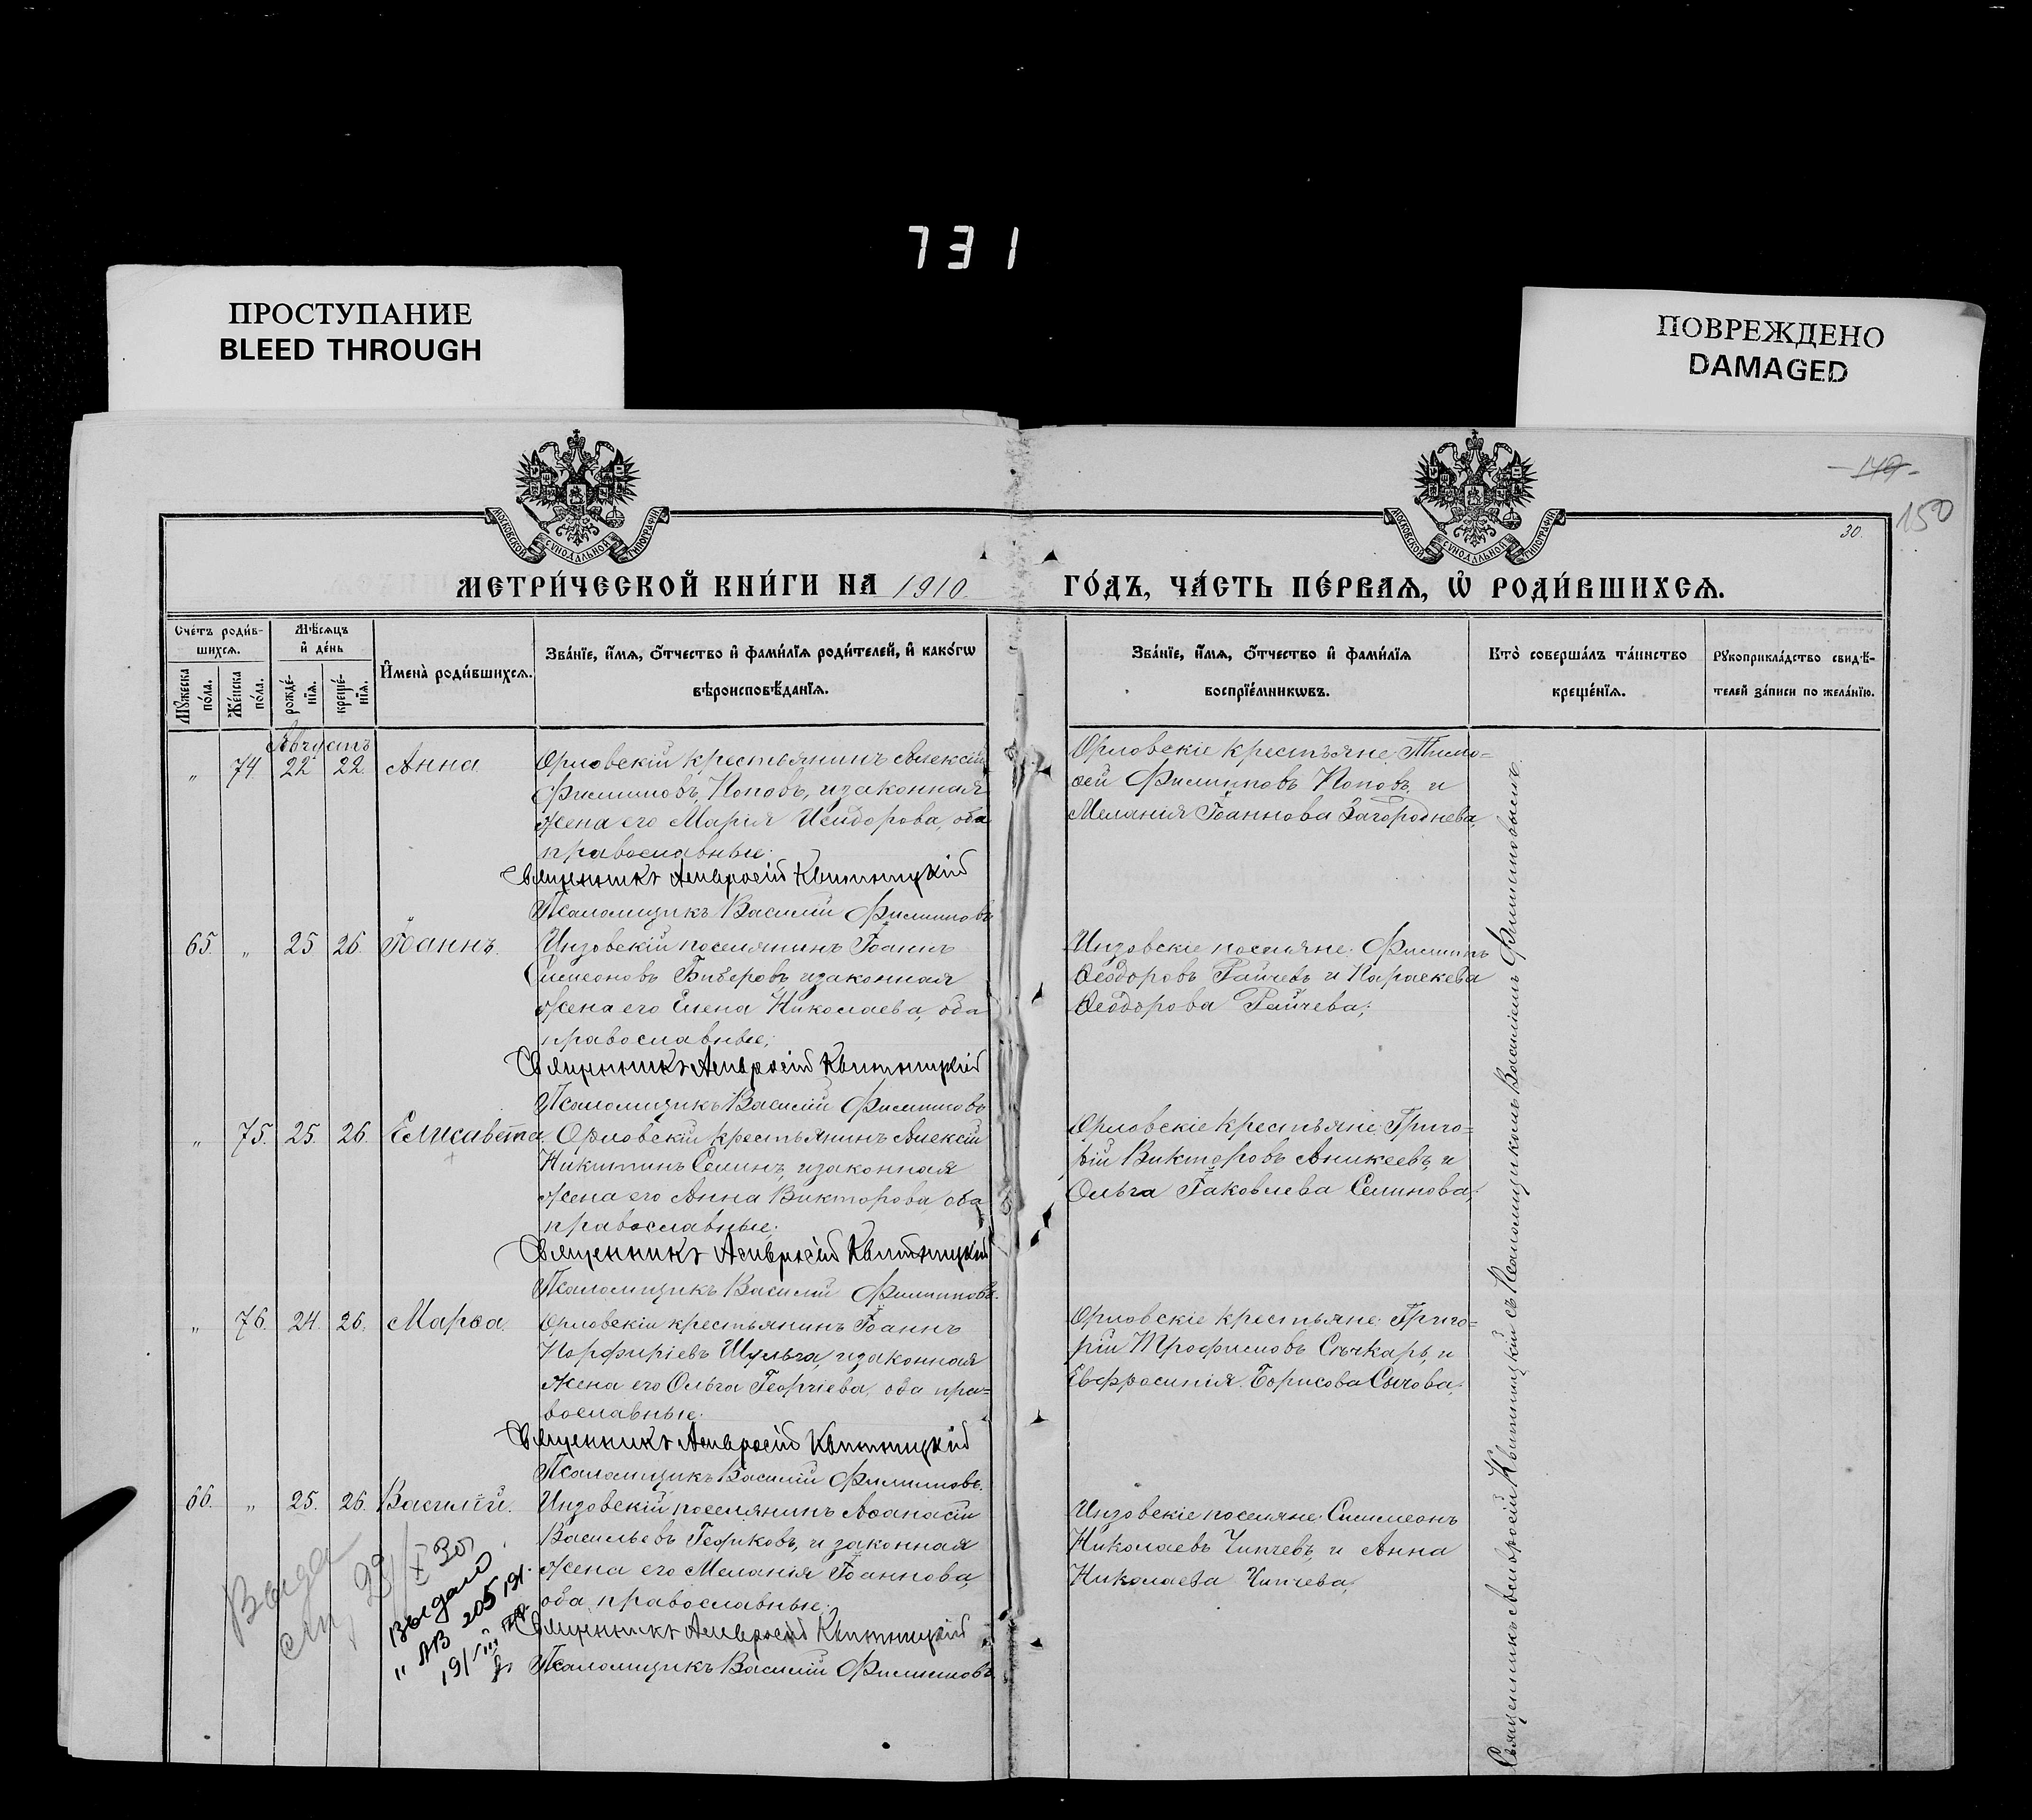 731
ПРОСТУПАНИЕ
BLEED THROUGH
ПОВРЕЖДЕНО
DAMAGED
МОСКОВСКОЙ СѴНОДАЛЬНОЙ ТИПОГРАФІИ
МОСКОВСКОЙ СѴНОДАЛЬНОЙ ТИПОГРАФІИ
149
150
30.
МЕТРИ́ЧЕСКОЙ КНИ́ГИ НА 1910
ГО́ДЪ, ЧА́СТЬ ПЕ́РВАѦ, Ѡ҆ РОДИ́ВШИХСѦ.
Сче́тъ роди́в-
шихсѧ.
Мꙋжеска по́ла.
Же́нска по́ла.
Мѣ́сѧцъ
и҆ де́нь
рожде́-
нїѧ.
креще́-
нїѧ.
И҆мена̀ роди́вшихсѧ.
Зва́нїе, и҆́мѧ, ѻ҆́тчество и҆ фами́лїѧ роди́телей, и҆ како́гѡ
вѣроисповѣ́данїѧ.
Зва́нїе, и҆́мѧ, ѻ҆́тчество и҆ фами́лїѧ
воспрїе́мникѡвъ.
Кто̀ соверша́лъ та́инство
креще́нїѧ.
Рꙋкоприкла́дство свидѣ́-
телей за́писи по жела́нїю.
Августъ
„ 74. 22 22. Анна.
Орловскій крестьянинъ Алексій
Филипповъ, Поповъ, и законная
жена его Марія Исидорова, оба
православные.
Священникъ Амвросій Квитницкій
Псаломщикъ Василій Филипповъ
Орловскіе крестьяне: Тимо=
ѳей Филипповъ Поповъ, и
Меланія Іоаннова Загороднева.
65. „ 25 26. Іоаннъ.
Инзовскій поселянинъ Іоаннъ
Симеоновъ Биберовъ, и законная
жена его Елена Николаева, оба
православные;
Священникъ Амвросій Квитницкій
Псаломщикъ Василій Филипповъ
Инзовскіе поселяне: Филиппъ
Ѳеодоровъ Райчевъ и Параскева
Ѳеодорова Райчева;
„ 75. 25. 26. Елисавета
Орловскій крестьянинъ Алексій
Никитинъ Семинъ, и законная
жена его Анна Викторова оба
православные;
Священникъ Амвросій Квитницкій
Псаломщикъ Василій Филипповъ.
Орловскіе крестьяне: Григо=
рій Викторовъ Аникеевъ, и
Ольга Іаковлева Семинова;
„ 76. 24. 26. Марѳа.
Орловскій крестьянинъ Іоаннъ
Порфиріевъ Шульга, и законная
жена его Ольга Георгіева, оба пра=
вославные.
Священникъ Амвросій Квитницкій
Псаломщикъ Василій Филипповъ.
Орловскіе крестьяне: Григо=
рій Трофимовъ Сѣчкарь, и
Евфросинія Борисова Сычова.
66. „ 25. 26. Василій.
Инзовскій поселянинъ Аѳанасій
Васильевъ Гефиковъ, и законная
жена его Меланія Іоаннова,
оба православные;
Священникъ Амвросій Квитницкій
Псаломщикъ Василій Филипповъ
Инзовскіе поселяне: Симмеонъ
Николаевъ Чипчевъ, и Анна
Николаева Чипчева;
выдано
" АВ 205191.
Священникъ Амвросій Квитницкій съ Псаломщикомъ Василіемъ Филипповымъ.